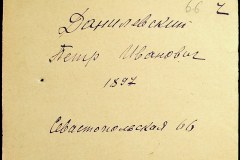 66
Данилевский
Петр Иванович
1897
Севастопольская 66